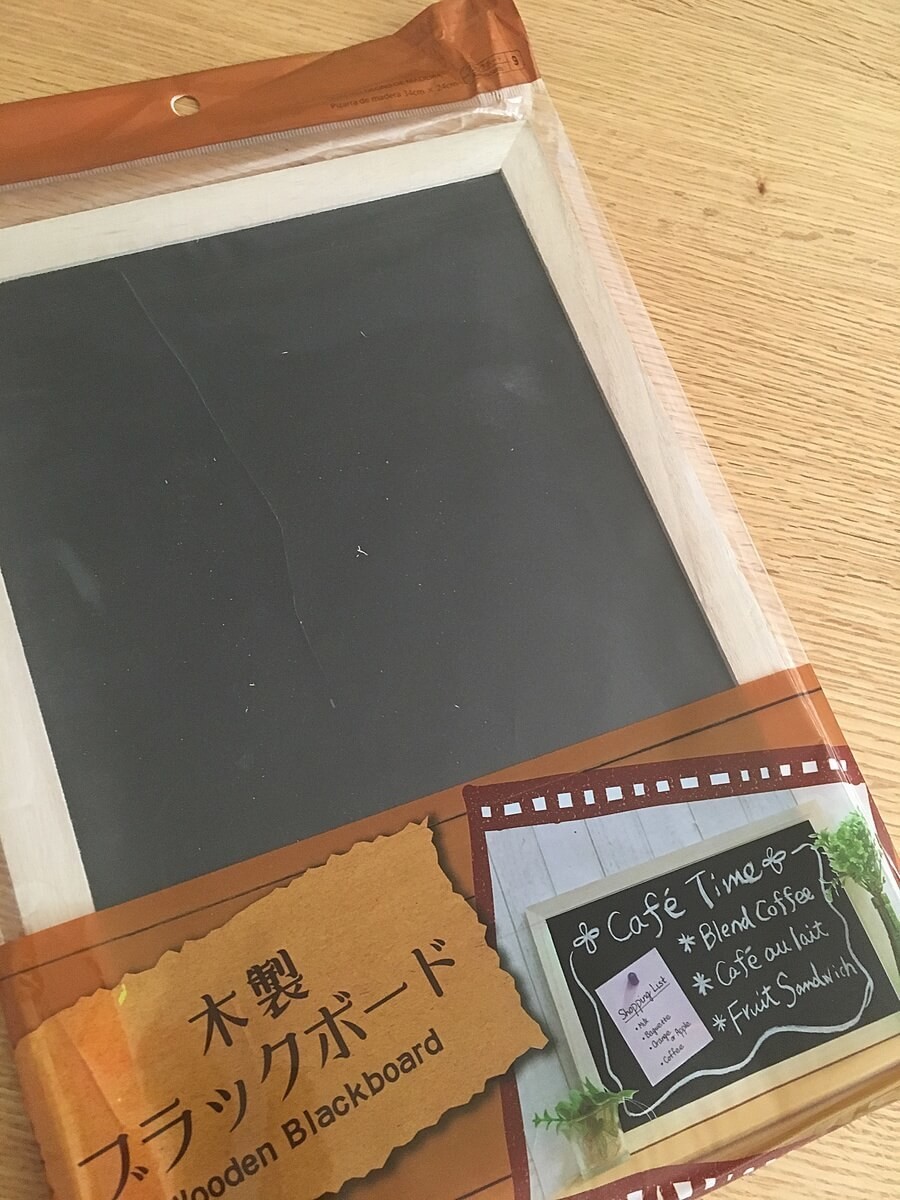 Pizarra de madera 34cm × 24cm
9
木製
ブラックボード
Wooden Blackboard
Café Time
*Blend Coffee
*Café au lait
*Fruit Sandwich
Shopping List
・Milk
・Baguette
・Orange
・Apple
・Coffee